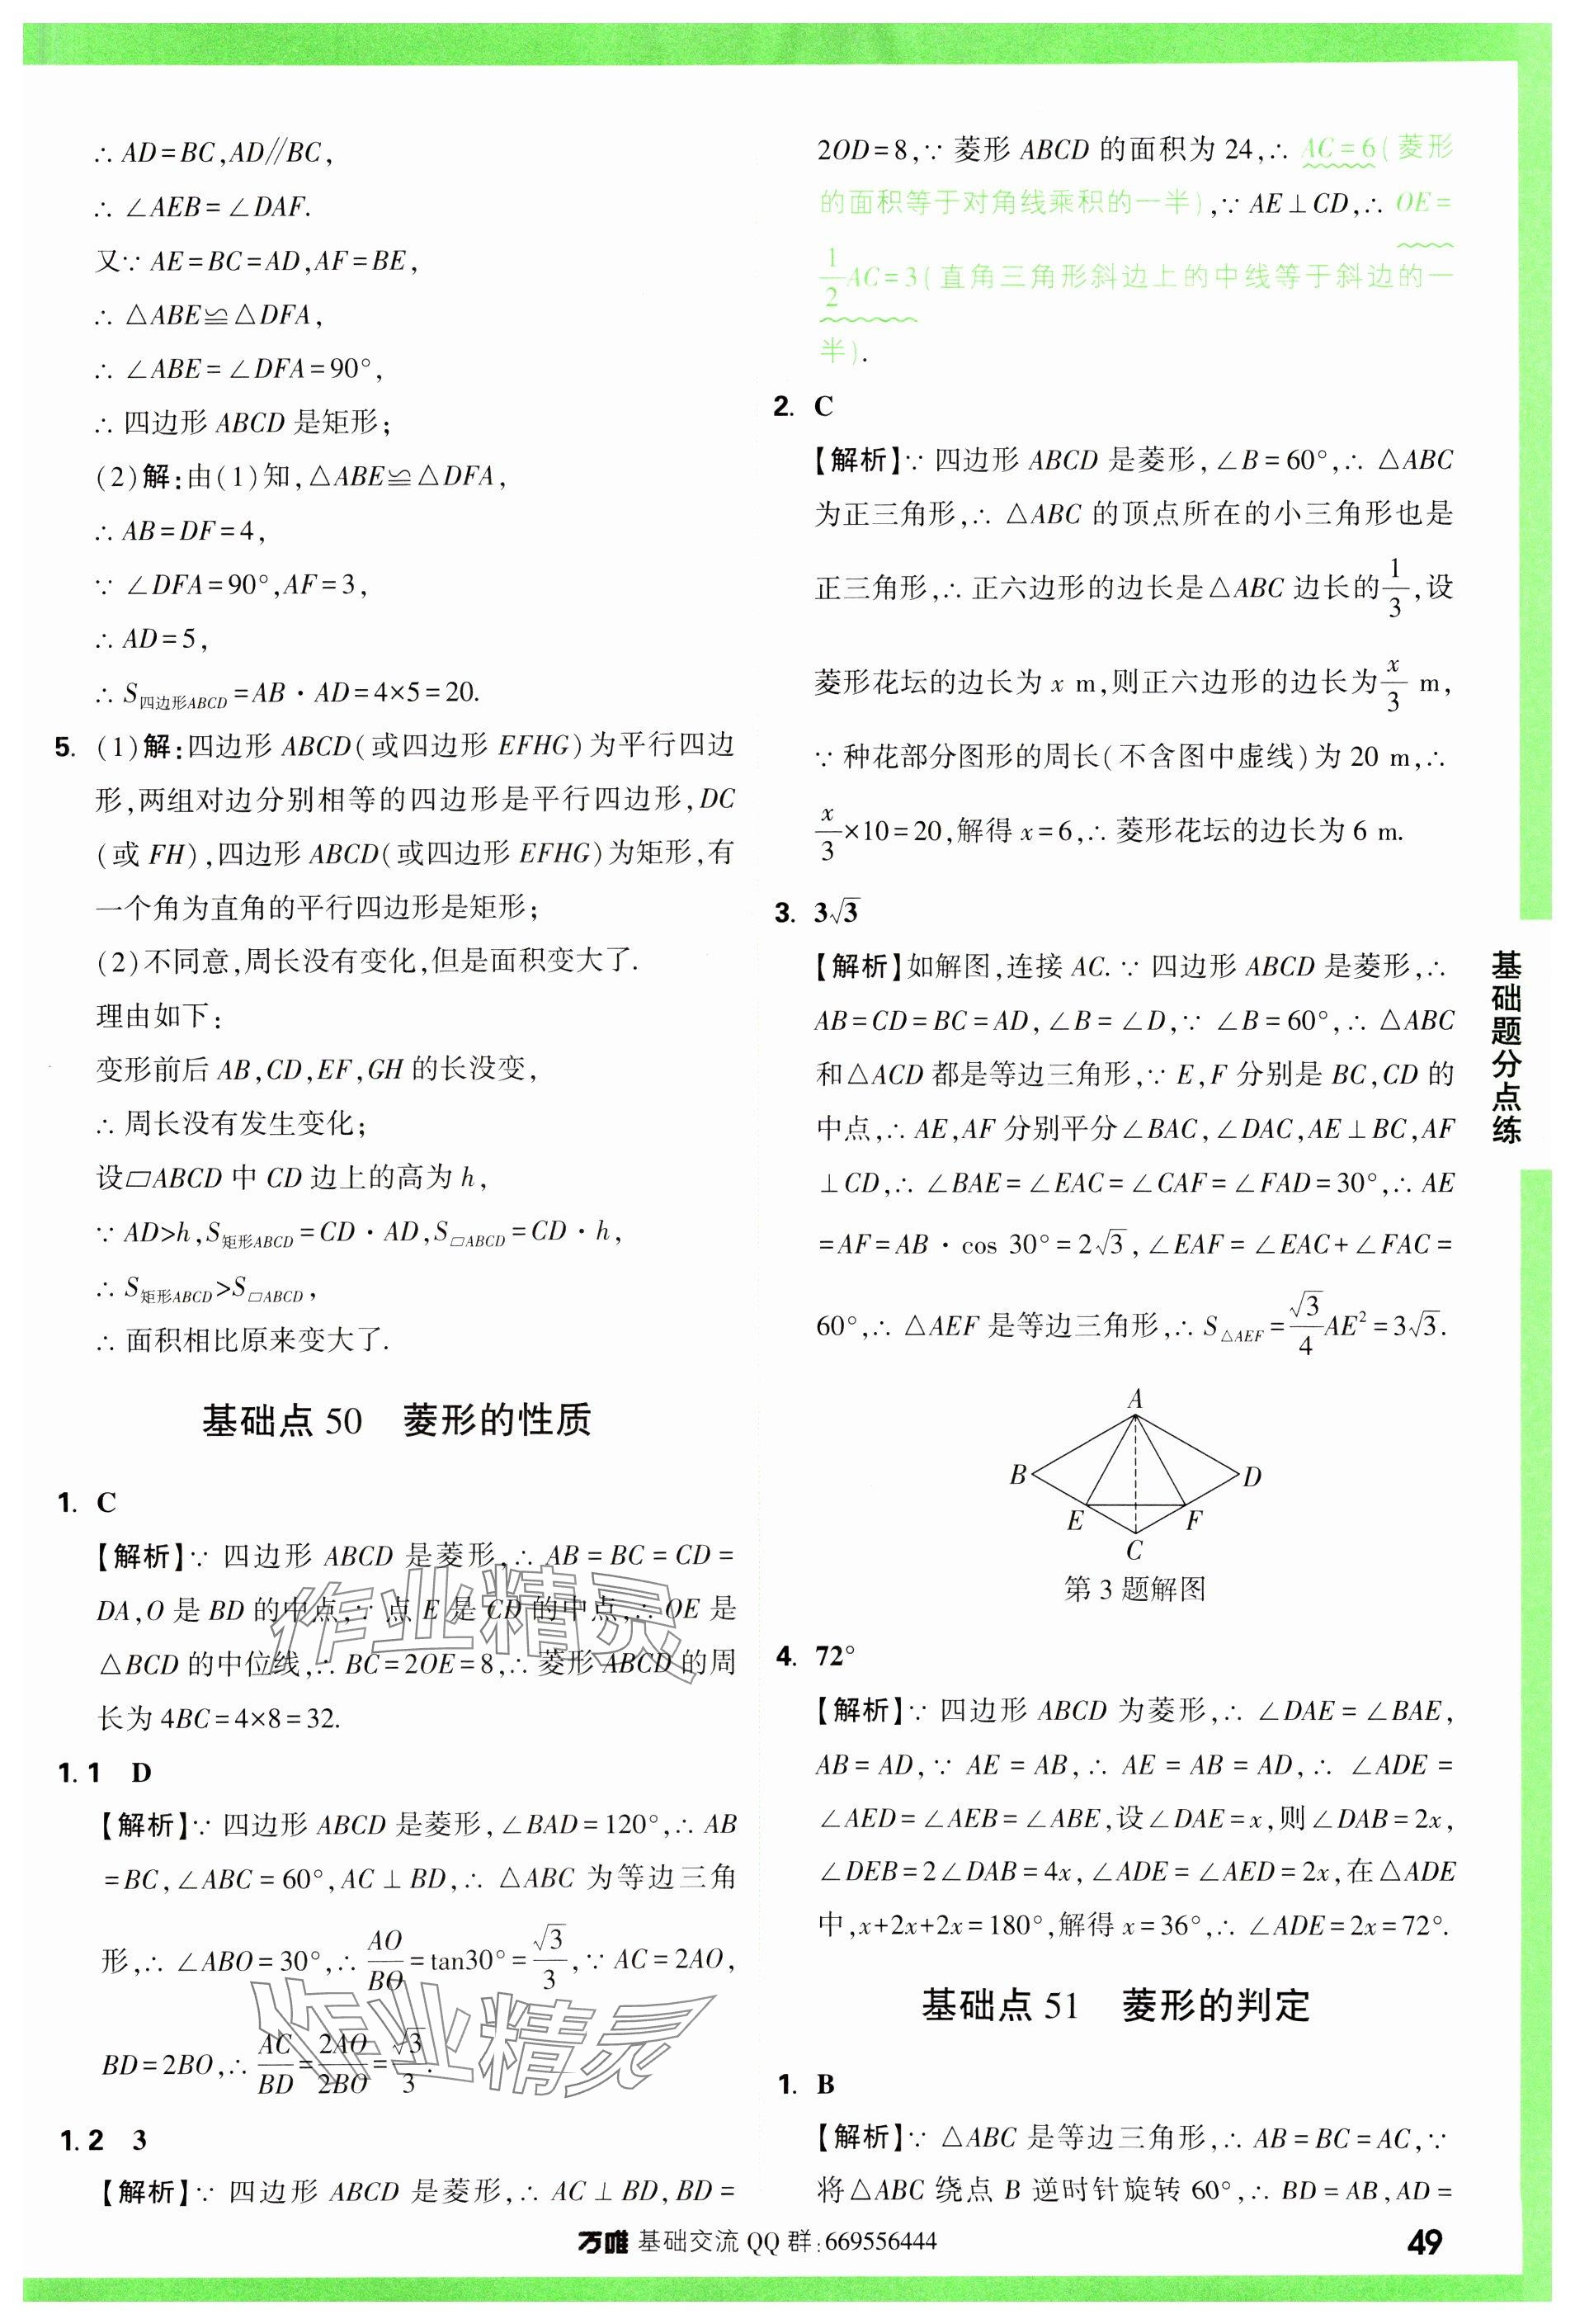 ∴ AD=BC,AD∥BC,
∴ ∠AEB=∠DAF.
又∵ AE=BC=AD,AF=BE,
∴ △ABE≌△DFA,
∴ ∠ABE=∠DFA=90°,
∴ 四边形 ABCD 是矩形;
(2)解:由(1)知,△ABE≌△DFA,
∴ AB=DF=4,
∵ ∠DFA=90°,AF=3,
∴ AD=5,
∴ S四边形ABCD=AB·AD=4×5=20.
5. (1)解:四边形 ABCD(或四边形 EFHG)为平行四边
形,两组对边分别相等的四边形是平行四边形,DC
(或 FH),四边形 ABCD(或四边形 EFHG)为矩形,有
一个角为直角的平行四边形是矩形;
(2)不同意,周长没有变化,但是面积变大了.
理由如下:
变形前后 AB,CD,EF,GH 的长没变,
∴ 周长没有发生变化;
设▱ABCD 中 CD 边上的高为 h,
∵ AD>h,S矩形ABCD=CD·AD,S▱ABCD=CD·h,
∴ S矩形ABCD>S▱ABCD,
∴ 面积相比原来变大了.
基础点 50 菱形的性质
1. C
【解析】∵ 四边形 ABCD 是菱形,∴ AB=BC=CD=
DA,O 是 BD 的中点,∵ 点 E 是 CD 的中点,∴ OE 是
△BCD 的中位线,∴ BC=2OE=8,∴ 菱形 ABCD 的周
长为 4BC=4×8=32.
1.1 D
【解析】∵ 四边形 ABCD 是菱形,∠BAD=120°,∴ AB
=BC,∠ABC=60°,AC⊥BD,∴ △ABC 为等边三角
形,∴ ∠ABO=30°,∴ AO/BO=tan30°=√3/3,∵ AC=2AO,
BD=2BO,∴ AC/BD=2AO/2BO=√3/3.
1.2 3
【解析】∵ 四边形 ABCD 是菱形,∴ AC⊥BD,BD=
2OD=8,∵ 菱形 ABCD 的面积为 24,∴ AC=6(菱形
的面积等于对角线乘积的一半),∵ AE⊥CD,∴ OE=
1/2AC=3(直角三角形斜边上的中线等于斜边的一
半).
2. C
【解析】∵ 四边形 ABCD 是菱形,∠B=60°,∴ △ABC
为正三角形,∴ △ABC 的顶点所在的小三角形也是
正三角形,∴ 正六边形的边长是△ABC 边长的1/3,设
菱形花坛的边长为 x m,则正六边形的边长为x/3 m,
∵ 种花部分图形的周长(不含图中虚线)为 20 m,∴
x/3×10=20,解得 x=6,∴ 菱形花坛的边长为 6 m.
3. 3√3
【解析】如解图,连接 AC.∵ 四边形 ABCD 是菱形,∴
AB=CD=BC=AD,∠B=∠D,∵ ∠B=60°,∴ △ABC
和△ACD 都是等边三角形,∵ E,F 分别是 BC,CD 的
中点,∴ AE,AF 分别平分∠BAC,∠DAC,AE⊥BC,AF
⊥CD,∴ ∠BAE=∠EAC=∠CAF=∠FAD=30°,∴ AE
=AF=AB·cos 30°=2√3,∠EAF=∠EAC+∠FAC=
60°,∴ △AEF 是等边三角形,∴ S△AEF=√3/4AE²=3√3.
A
B D
E F
C
第 3 题解图
4. 72°
【解析】∵ 四边形 ABCD 为菱形,∴ ∠DAE=∠BAE,
AB=AD,∵ AE=AB,∴ AE=AB=AD,∴ ∠ADE=
∠AED=∠AEB=∠ABE,设∠DAE=x,则∠DAB=2x,
∠DEB=2∠DAB=4x,∠ADE=∠AED=2x,在△ADE
中,x+2x+2x=180°,解得 x=36°,∴ ∠ADE=2x=72°.
基础点 51 菱形的判定
1. B
【解析】∵ △ABC 是等边三角形,∴ AB=BC=AC,∵
将△ABC 绕点 B 逆时针旋转 60°,∴ BD=AB,AD=
基础题分点练
作业精灵
作业精灵
万唯 基础交流 QQ 群:669556444
49